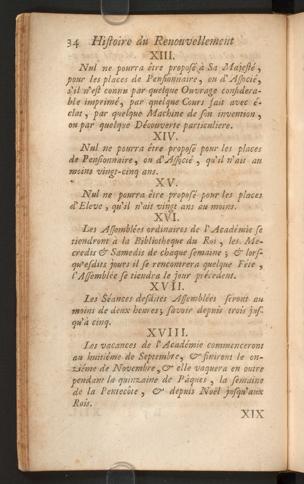 34 Histoire du Renouvellement
XIII.
Nul ne pourra être proposé à Sa Majesté,
pour les places de Pensionnaire, ou d'Associé,
s'il n'est connu par quelque Ouvrage considera-
ble imprimé, par quelque Cours fait avec é-
clat, par quelque Machine de son invention,
ou par quelque Découverte particuliere.
XIV.
Nul ne pourra être proposé pour les places
de Pensionnaire, ou d'Associé, qu'il n'ait au
moins vingt-cinq ans.
XV.
Nul ne pourra être proposé pour les places
d'Eleve, qu'il n'ait vingt ans au moins.
XVI.
Les Assemblées ordinaires de l'Académie se
tiendront à la Bibliotheque du Roi, les Me-
credis & Samedis de chaque semaine; & lors-
qu'esdits jours il se rencontrera quelque Fête,
l'Assemblée se tiendra le jour précedent.
XVII.
Les Séances desdites Assemblées seront au
moins de deux heures; savoir depuis trois jus-
qu'à cinq.
XVIII.
Les vacances de l'Académie commenceront
au huitième de Septembre, & finiront le on-
zième de Novembre, & elle vaquera en outre
pendant la quinzaine de Pâques, la semaine
de la Pentecôte, & depuis Noël jusqu'aux
Rois.
XIX